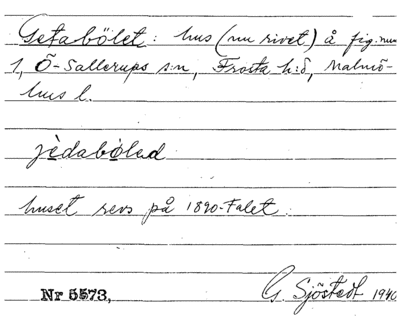 Getabölet: hus (nu rivet) å fig. num
1, Ö-Sallerups s:n, Frosta h:d, Malmö-
hus l.
jèdabölad
huset revs på 1890-talet.
Nr 5573,
G. Sjöstedt 1940